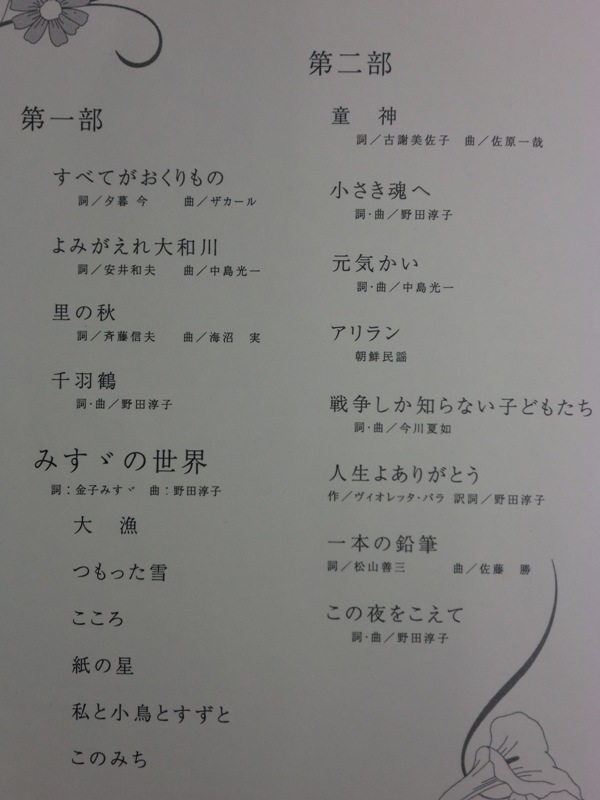 第一部
すべてがおくりもの
詞／夕暮 今　曲／ザカール
よみがえれ大和川
詞／安井和夫　曲／中島光一
里の秋
詞／斉藤信夫　曲／海沼　実
千羽鶴
詞・曲／野田淳子
みすゞの世界
詞：金子みすゞ　曲：野田淳子
大　漁
つもった雪
こころ
紙の星
私と小鳥とすずと
このみち
第二部
童　神
詞／古謝美佐子　曲／佐原一哉
小さき魂へ
詞・曲／野田淳子
元気かい
詞・曲／中島光一
アリラン
朝鮮民謡
戦争しか知らない子どもたち
詞・曲／今川夏如
人生よありがとう
作／ヴィオレッタ・パラ 訳詞／野田淳子
一本の鉛筆
詞／松山善三　曲／佐藤　勝
この夜をこえて
詞・曲／野田淳子